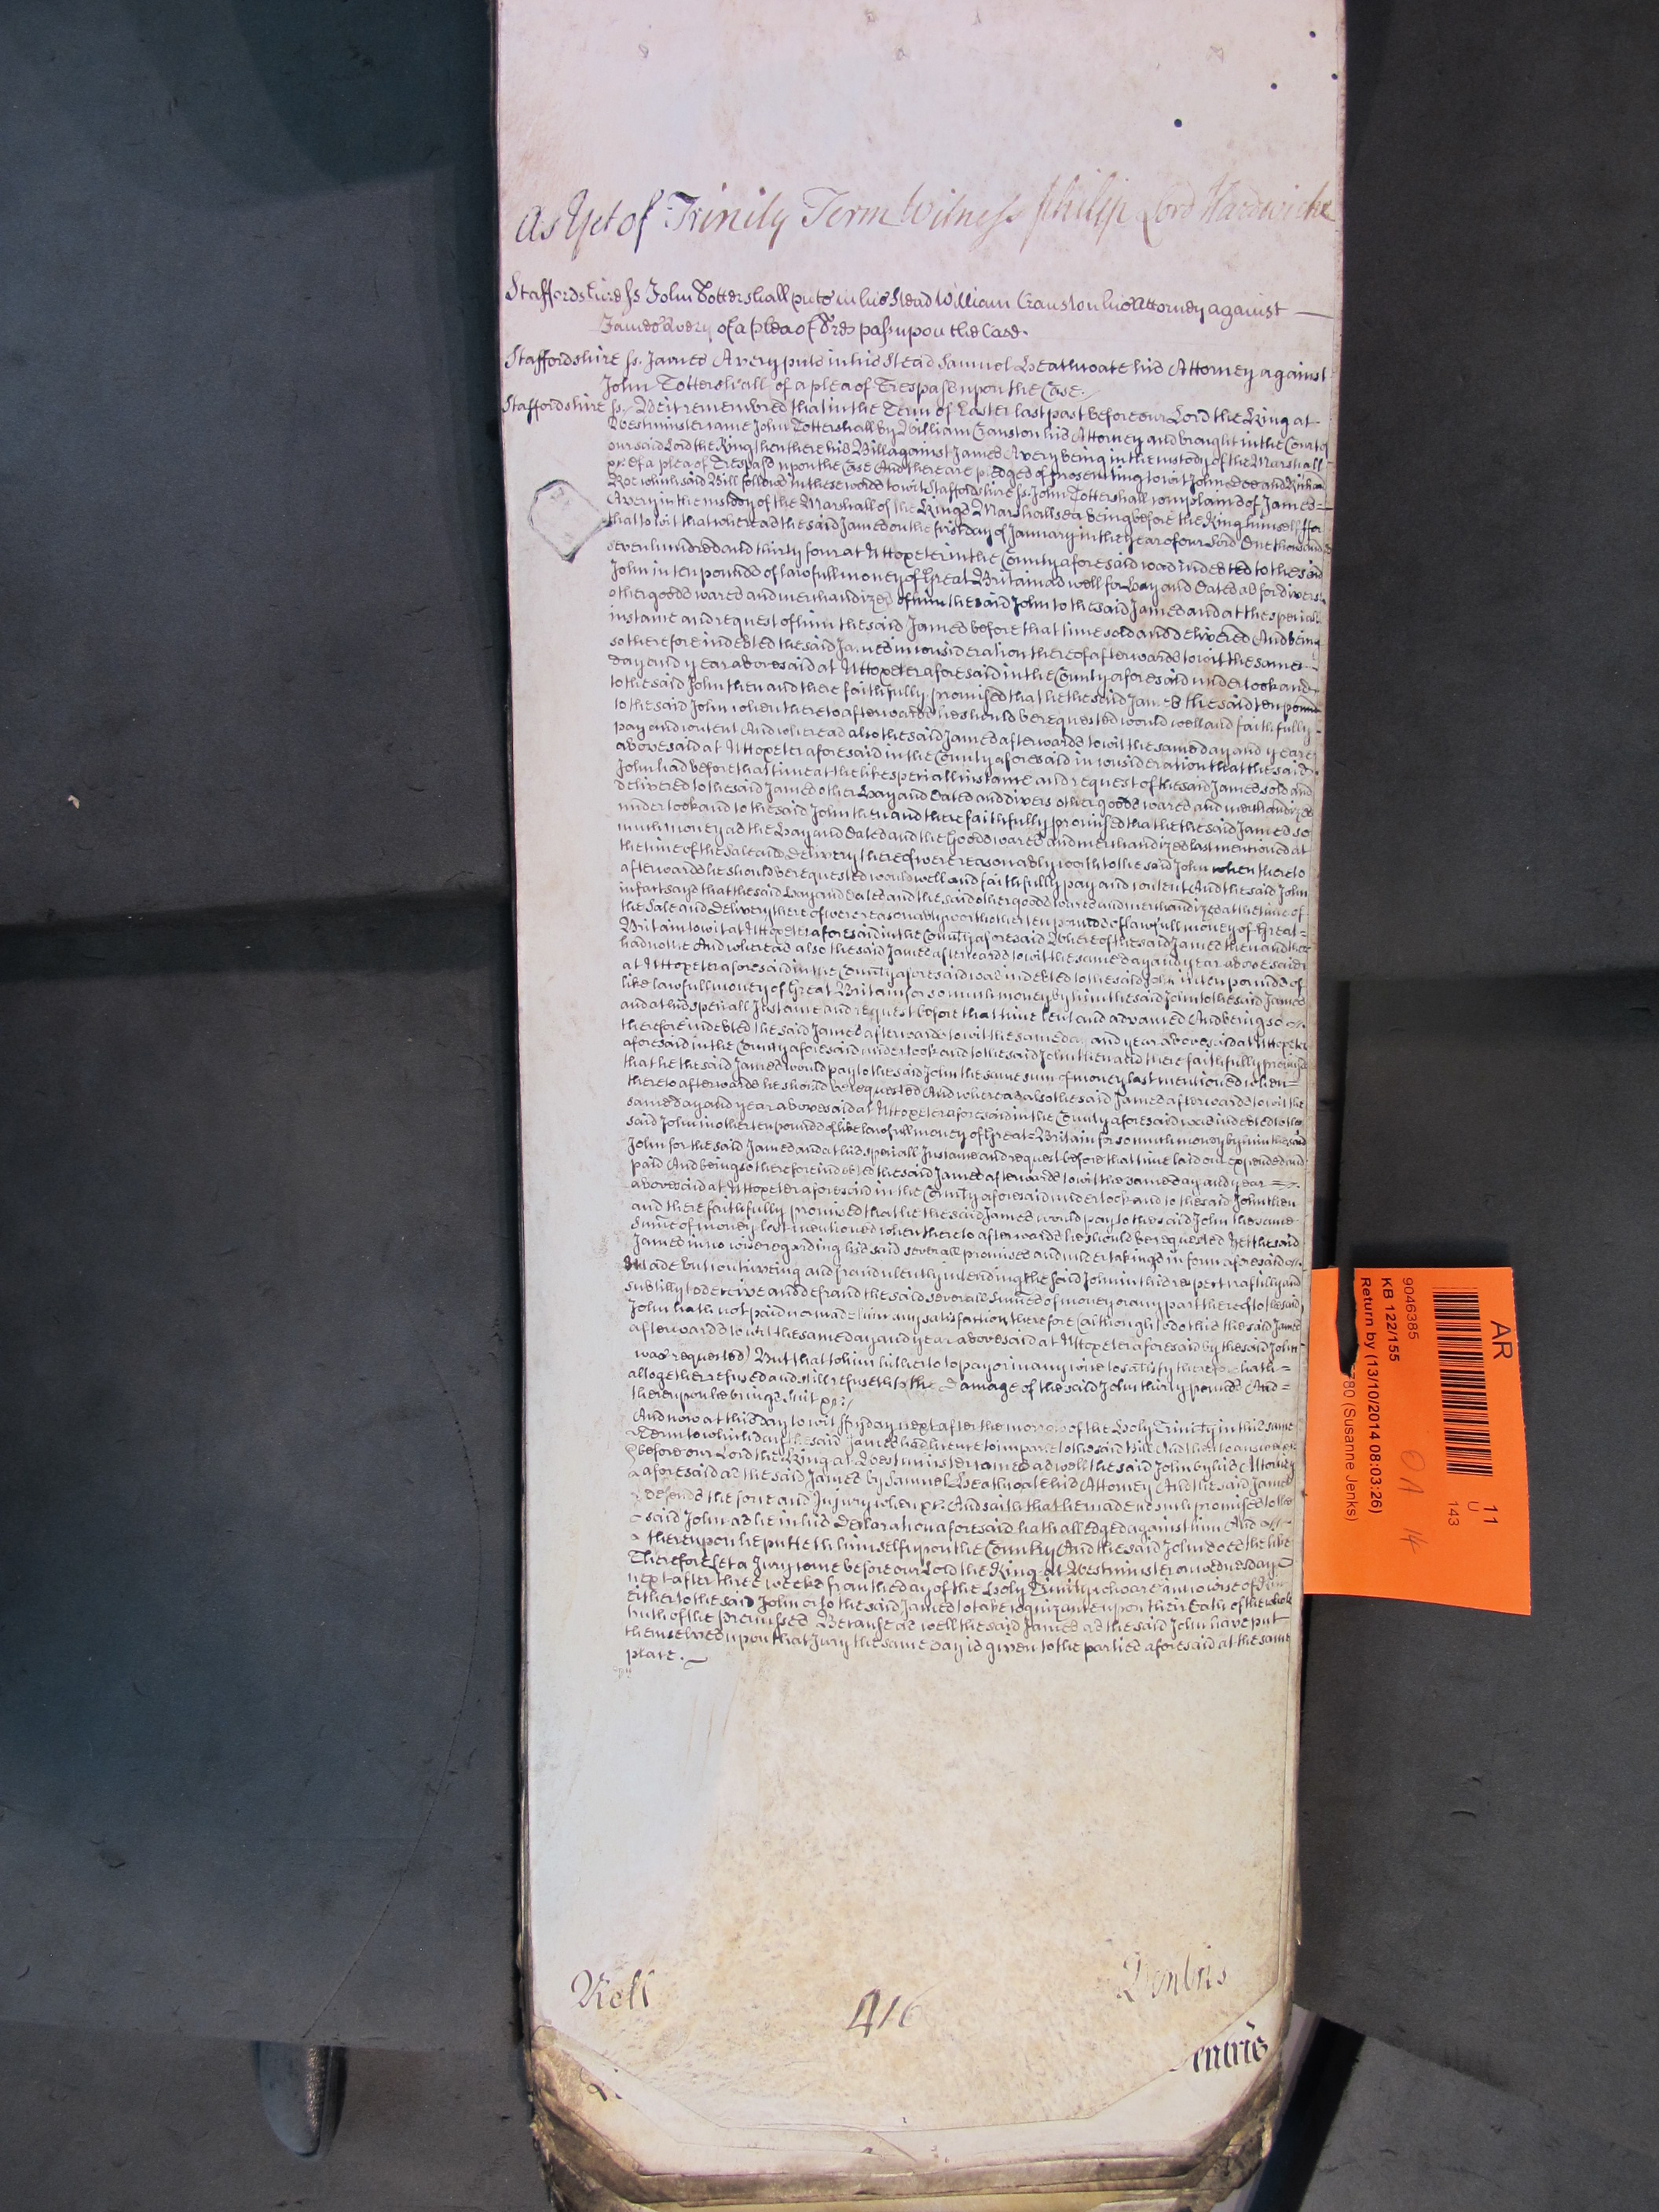 As Yet of Trinity Term Witness Philip Lord Hardwicke
Staffordshire ss. John Tottershall puts in his Stead William Causton his Attorney against
James Avery of a plea of Trespass upon the Case.
Staffordshire ss. James Avery puts in his Stead Samuel Heathcoate his Attorney against
John Tottershall of a plea of Trespass upon the Case.
Staffordshire ss. Be it remembred that in the Term of Easter last past before our Lord the King at
Westminster came John Tottershall by William Causton his Attorney and brought in the Court of
our said Lord the King then there his Bill against James Avery being in the custody of the Marshall
&c of a plea of Trespass upon the Case And there are pledges of prosecuting to wit John Doe and Richard
Roe which said Bill follows in these words to wit Staffordshire ss. John Tottershall complains of James
Avery in the custody of the Marshall of the Kings Marshallsea being before the King himself ffor
that to wit that whereas the said James on the first day of January in the year of our Lord One thousand
seven hundred and thirty four at Uttoxeter in the County aforesaid was indebted to the said
John in ten pounds of lawfull money of Great Britain as well for Hay and Oates as for divers
other goods wares and merchandizes of him the said John to the said James and at the speciall
instance and request of him the said James before that time sold and delivered And being
so therefore indebted the said James in consideration thereof afterwards to wit the same
day and year abovesaid at Uttoxeter aforesaid in the County aforesaid undertook and
to the said John then and there faithfully promised that he the said James the said ten pounds
to the said John when thereto afterwards he should be requested would well and faithfully
pay and content And whereas also the said James afterwards to wit the same day and year
abovesaid at Uttoxeter aforesaid in the County aforesaid in consideration that the said
John had before that time at the like speciall instance and request of the said James sold and
delivered to the said James other Hay and Oates and divers other goods wares and merchandizes
undertook and to the said John then and there faithfully promised that he the said James so
much money as the Hay and Oates and the Goods wares and merchandizes last mentioned at
the time of the Sale and Delivery thereof were reasonably worth to the said John when thereto
afterwards he should be requested would well and faithfully pay and content And the said John
in fact says that the said Hay and Oates and the said other goods wares and merchandizes at the time of
the Sale and Delivery thereof were reasonably worth other ten pounds of lawfull money of Great
Britain to wit at Uttoxeter aforesaid in the County aforesaid Whereof the said James then and there
had notice And whereas also the said James afterwards to wit the same day and year abovesaid
at Uttoxeter aforesaid in the County aforesaid was indebted to the said John in ten pounds of
like lawfull money of Great Britain for so much money by him the said John to the said James
and at his speciall Instance and request before that time lent and advanced And being so
therefore indebted the said James afterwards to wit the same day and year abovesaid at Uttoxeter
aforesaid in the County aforesaid undertook and to the said John then and there faithfully promised
that he the said James would pay to the said John the same sum of money last mentioned when
thereto afterwards he should be requested And whereas also the said James afterwards to wit the
same day and year abovesaid at Uttoxeter aforesaid in the County aforesaid was indebted to the
said John in other ten pounds of like lawfull money of Great Britain for so much money by him the said
John for the said James and at his speciall Instance and request before that time laid out expended and
paid And being so therefore indebted the said James afterwards to wit the same day and year
abovesaid at Uttoxeter aforesaid in the County aforesaid undertook and to the said John then
and there faithfully promised that he the said James would pay to the said John the same
Summe of money last mentioned when thereto afterwards he should be requested Yet the said
James in no wise regarding his said severall promises and undertakings in form aforesaid
Made but contriveing and fraudulently intending the said John in this respect craftilly and
subtilly to deceive and defraud the said severall Summes of money or any part thereof to the said
John hath not paid nor made him any satisfaction therefore (although to do this the said James
afterwards to wit the same day and year abovesaid at Uttoxeter aforesaid by the said John
was requested) But that to him hitherto to pay or in any wise to satisfy therefore hath
altogether refused and still refuseth to the Damage of the said John thirty pounds And
thereupon he brings Suit &c
And now at this day to wit ffryday next after the morrow of the Holy Trinity in this same
Term to which day the said James had licence to imparle to the said Bill And then to answer &c
before our Lord the King at Westminster comes as well the said John by his Attorney
aforesaid as the said James by Samuel Heathcoate his Attorney And the said James
defends the force and Injury when &c. And saith that he made no such promises to the
said John as he in his Declaration aforesaid hath alledged against him And
thereupon he putteth himself upon the Country And the said John does the like
Therefore let a Jury come before our Lord the King at Westminster on wednesday
next after three weeks from the day of the Holy Trinity who are in no wise of kin
either to the said John or to the said James to take recognizance upon their Oath of the whole
truth of the premisses Because as well the said James as the said John have put
themselves upon that Jury the same Day is given to the parties aforesaid at the same
place.
Roll
416
AR
11
U
143
9046385
KB 122/155
Return by (13/10/2014 08:03:26)
780 (Susanne Jenks)